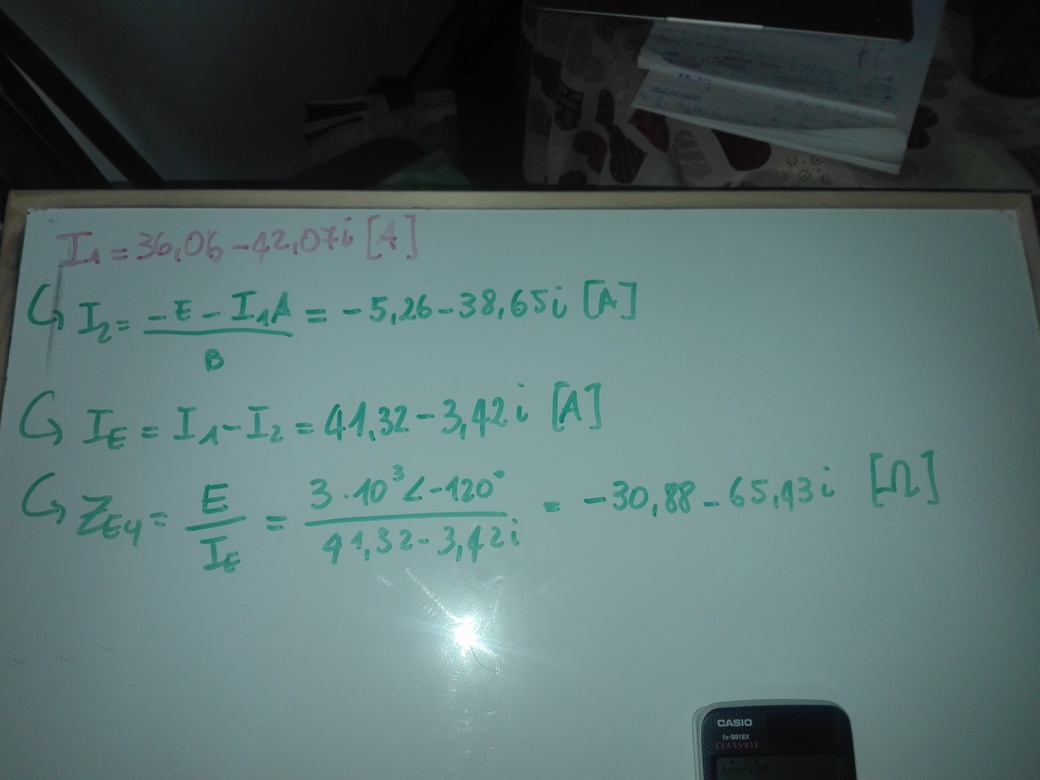 I1 = 36,06 - 42,07i [A]
↳ I2 = (-E - I1A) / B = -5,26 - 38,65i [A]
↳ IE = I1 - I2 = 41,32 - 3,42i [A]
↳ ZE4 = E / IE = 3·10³∠-120° / 41,32 - 3,42i = -30,88 - 65,43i [Ω]
CASIO
fx-991EX
CLASSWIZ